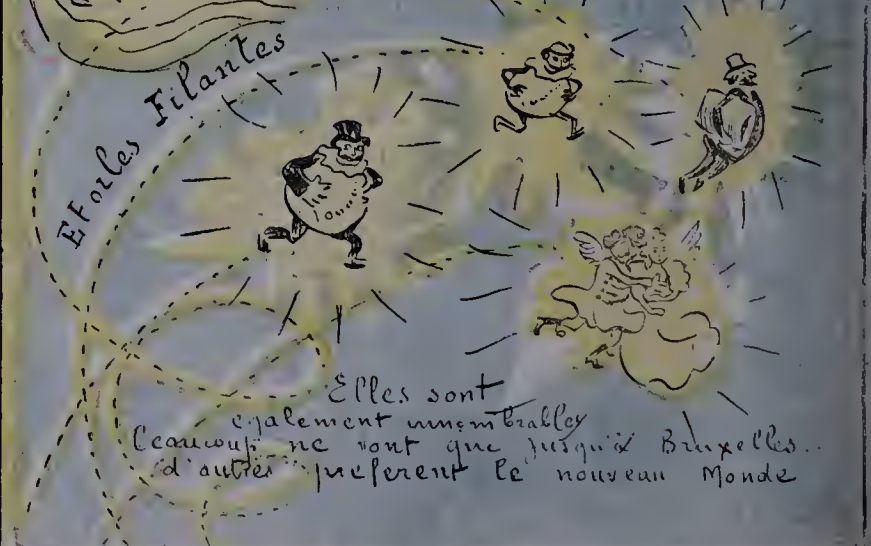 Etoiles Filantes
Elles sont
egalement innombrables
Beaucoup ne vont que jusqu'à Bruxelles..
d'autres preferent le nouveau Monde